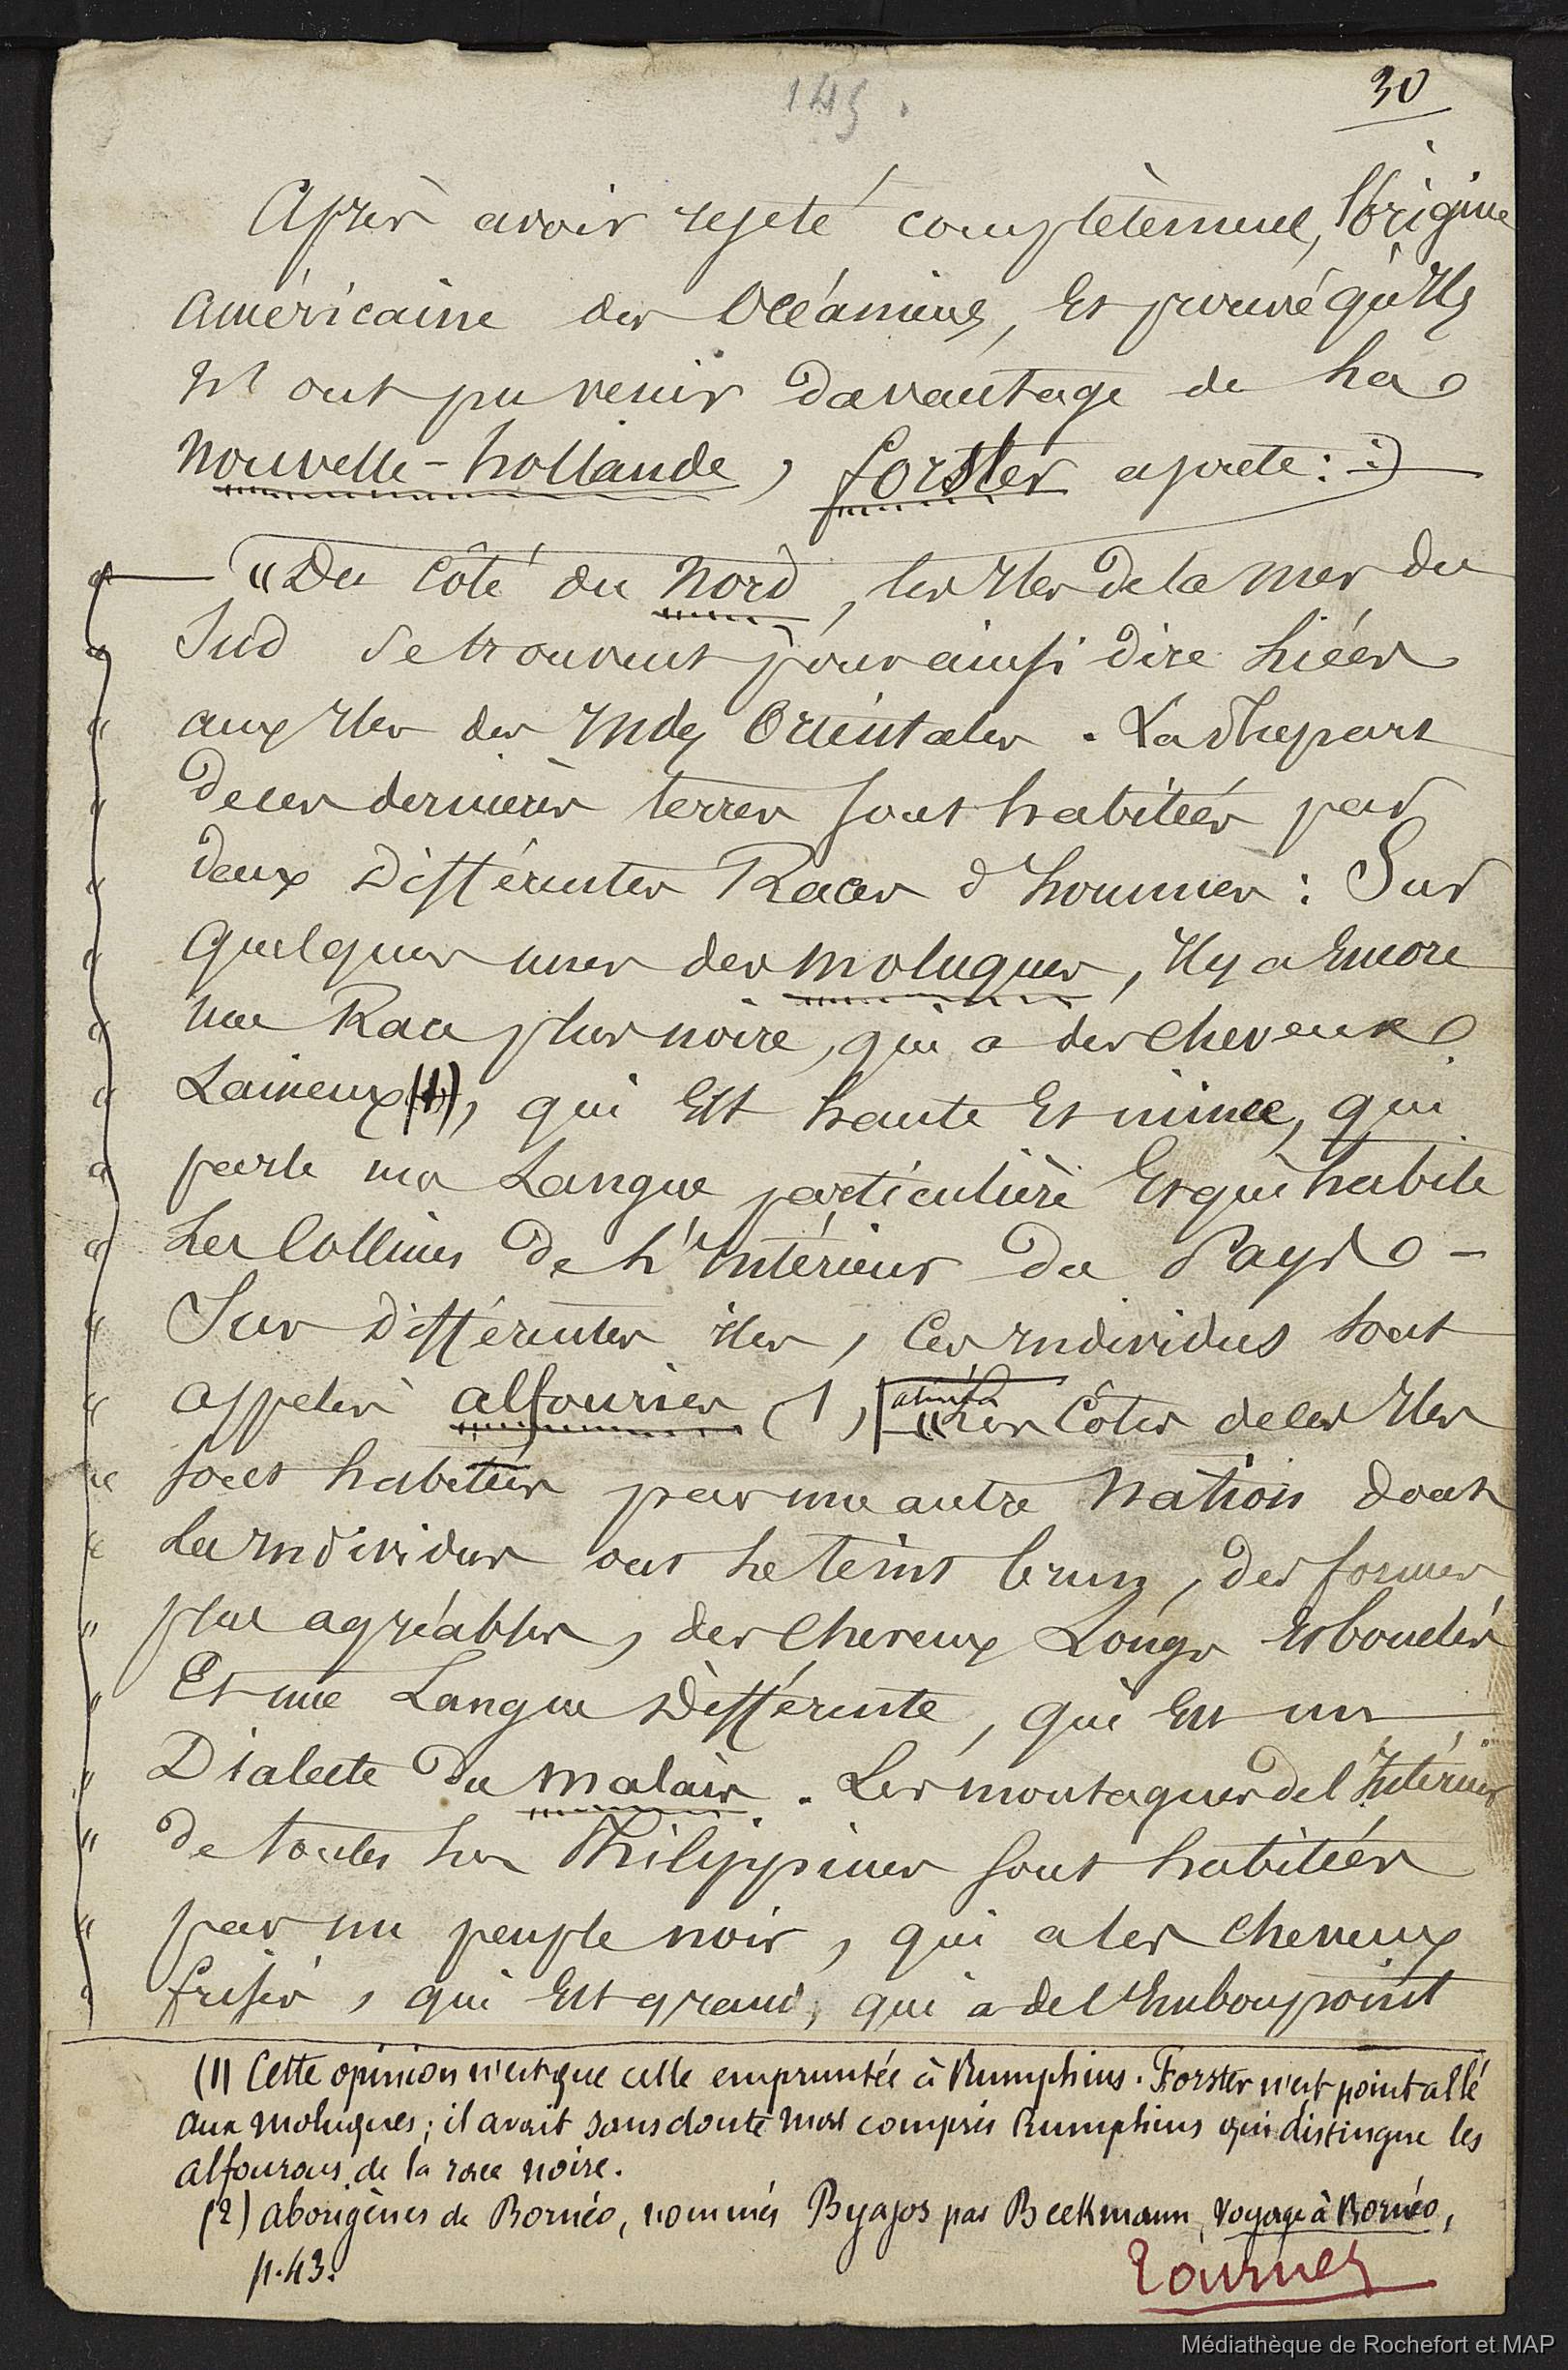 145.
30
Après avoir rejeté complètement, l'origine
américaine des Océaniens, Et prouvé qu'Ils
n'ont pu venir davantage de La
Nouvelle-hollande, forster ajoute :
"Du Côté du Nord, les Iles de la mer du
Sud se trouvent pour ainsi dire Liées
aux Iles des Indes Orientales. La Plupart
de ces dernières terres sont habitées par
deux Différentes Races d'hommes : Sur
quelques unes des moluques, Il y a Encore
une Race plus noire, qui a des cheveux
Laineux (1), qui Est haute Et mince, qui
parle une Langue particulière Et qui habite
Les Collines de L'Intérieur du Pays -
Sur Différentes Iles, Ces Individus sont
appelés alfouries (
alinéa
"Les Côtes de ces Iles
sont habitées par une autre Nation dont
Les Individus ont Le teint brun, des formes
plus agréables, des cheveux Longs Et bouclés
Et une Langue Différente, qui Est un
Dialecte du malais. Les montagnes de l'Intérieur
de toutes Les Philippines sont habitées
par un peuple noir, qui a les cheveux
frisés, qui Est grand, qui a de l'Embonpoint
(1) Cette opinion n'est que celle empruntée à Rumphius. Forster n'est point allé
aux moluques ; il avait sans doute mal compris Rumphius qui distingue les
alfourous de la race noire.
(2) aborigènes de Bornéo, nommés Byajos par Beekmann, voyage à Bornéo,
p. 43.
Tournez
Médiathèque de Rochefort et MAP